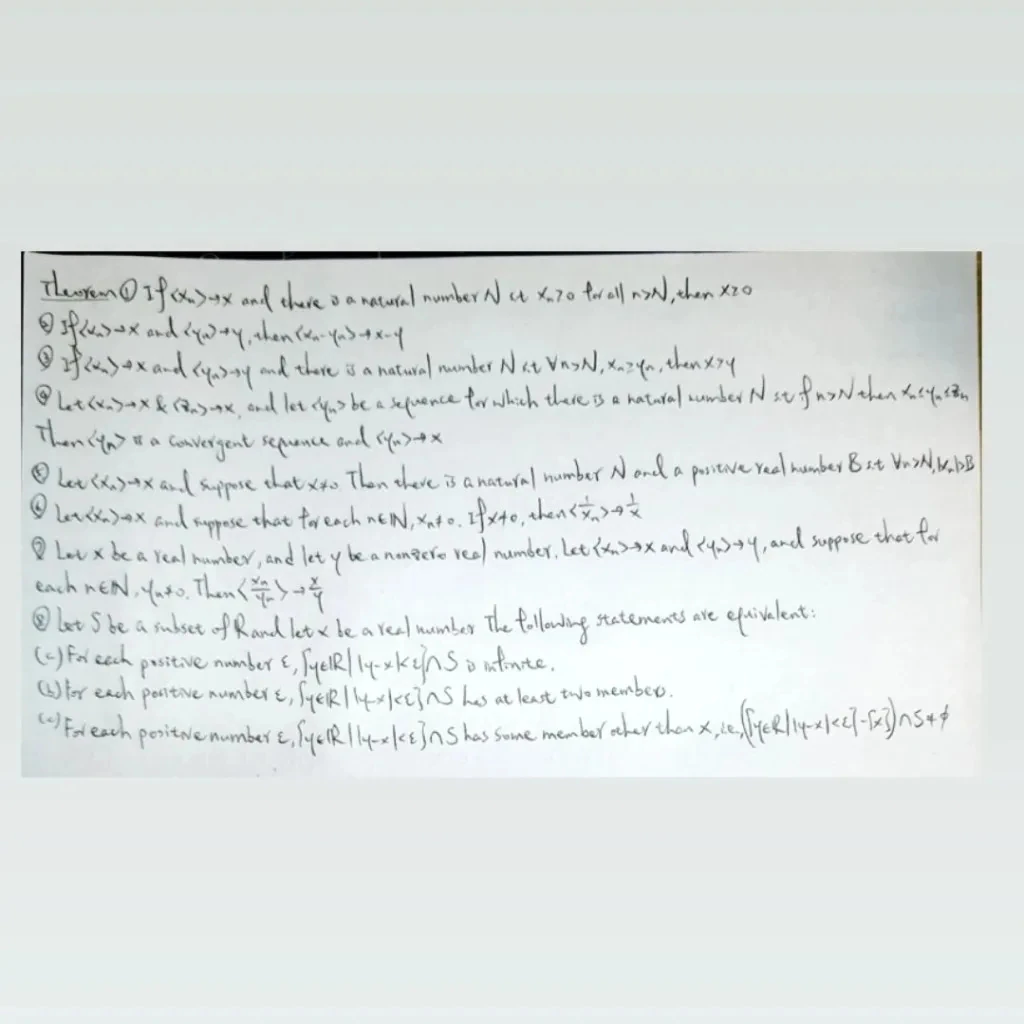 Theorem ① If <xₙ>→x and there is a natural number N st xₙ≥0 for all n>N, then x≥0
② If <xₙ>→x and <yₙ>→y, then <xₙ-yₙ>→x-y
③ If <xₙ>→x and <yₙ>→y and there is a natural number N s.t ∀n>N, xₙ≥yₙ, then x≥y
④ Let <xₙ>→x & <zₙ>→x, and let <yₙ> be a sequence for which there is a natural number N st if n>N then xₙ≤yₙ≤zₙ
Then <yₙ> is a convergent sequence and <yₙ>→x
⑤ Let <xₙ>→x and suppose that x≠0. Then there is a natural number N and a positive real number B s.t ∀n>N, |xₙ|>B
⑥ Let <xₙ>→x and suppose that for each n∈ℕ, xₙ≠0. If x≠0, then <1/xₙ>→1/x
⑦ Let x be a real number, and let y be a nonzero real number. Let <xₙ>→x and <yₙ>→y, and suppose that for
each n∈ℕ, yₙ≠0. Then <xₙ/yₙ>→x/y
⑧ Let S be a subset of R and let x be a real number The following statements are equivalent:
(a) For each positive number ε, {y∈ℝ| |y-x|<ε}∩S is infinite.
(b) For each positive number ε, {y∈ℝ| |y-x|<ε}∩S has at least two members.
(c) For each positive number ε, {y∈ℝ| |y-x|<ε}∩S has some member other than x, i.e., ({y∈ℝ| |y-x|<ε}-{x})∩S≠ϕ